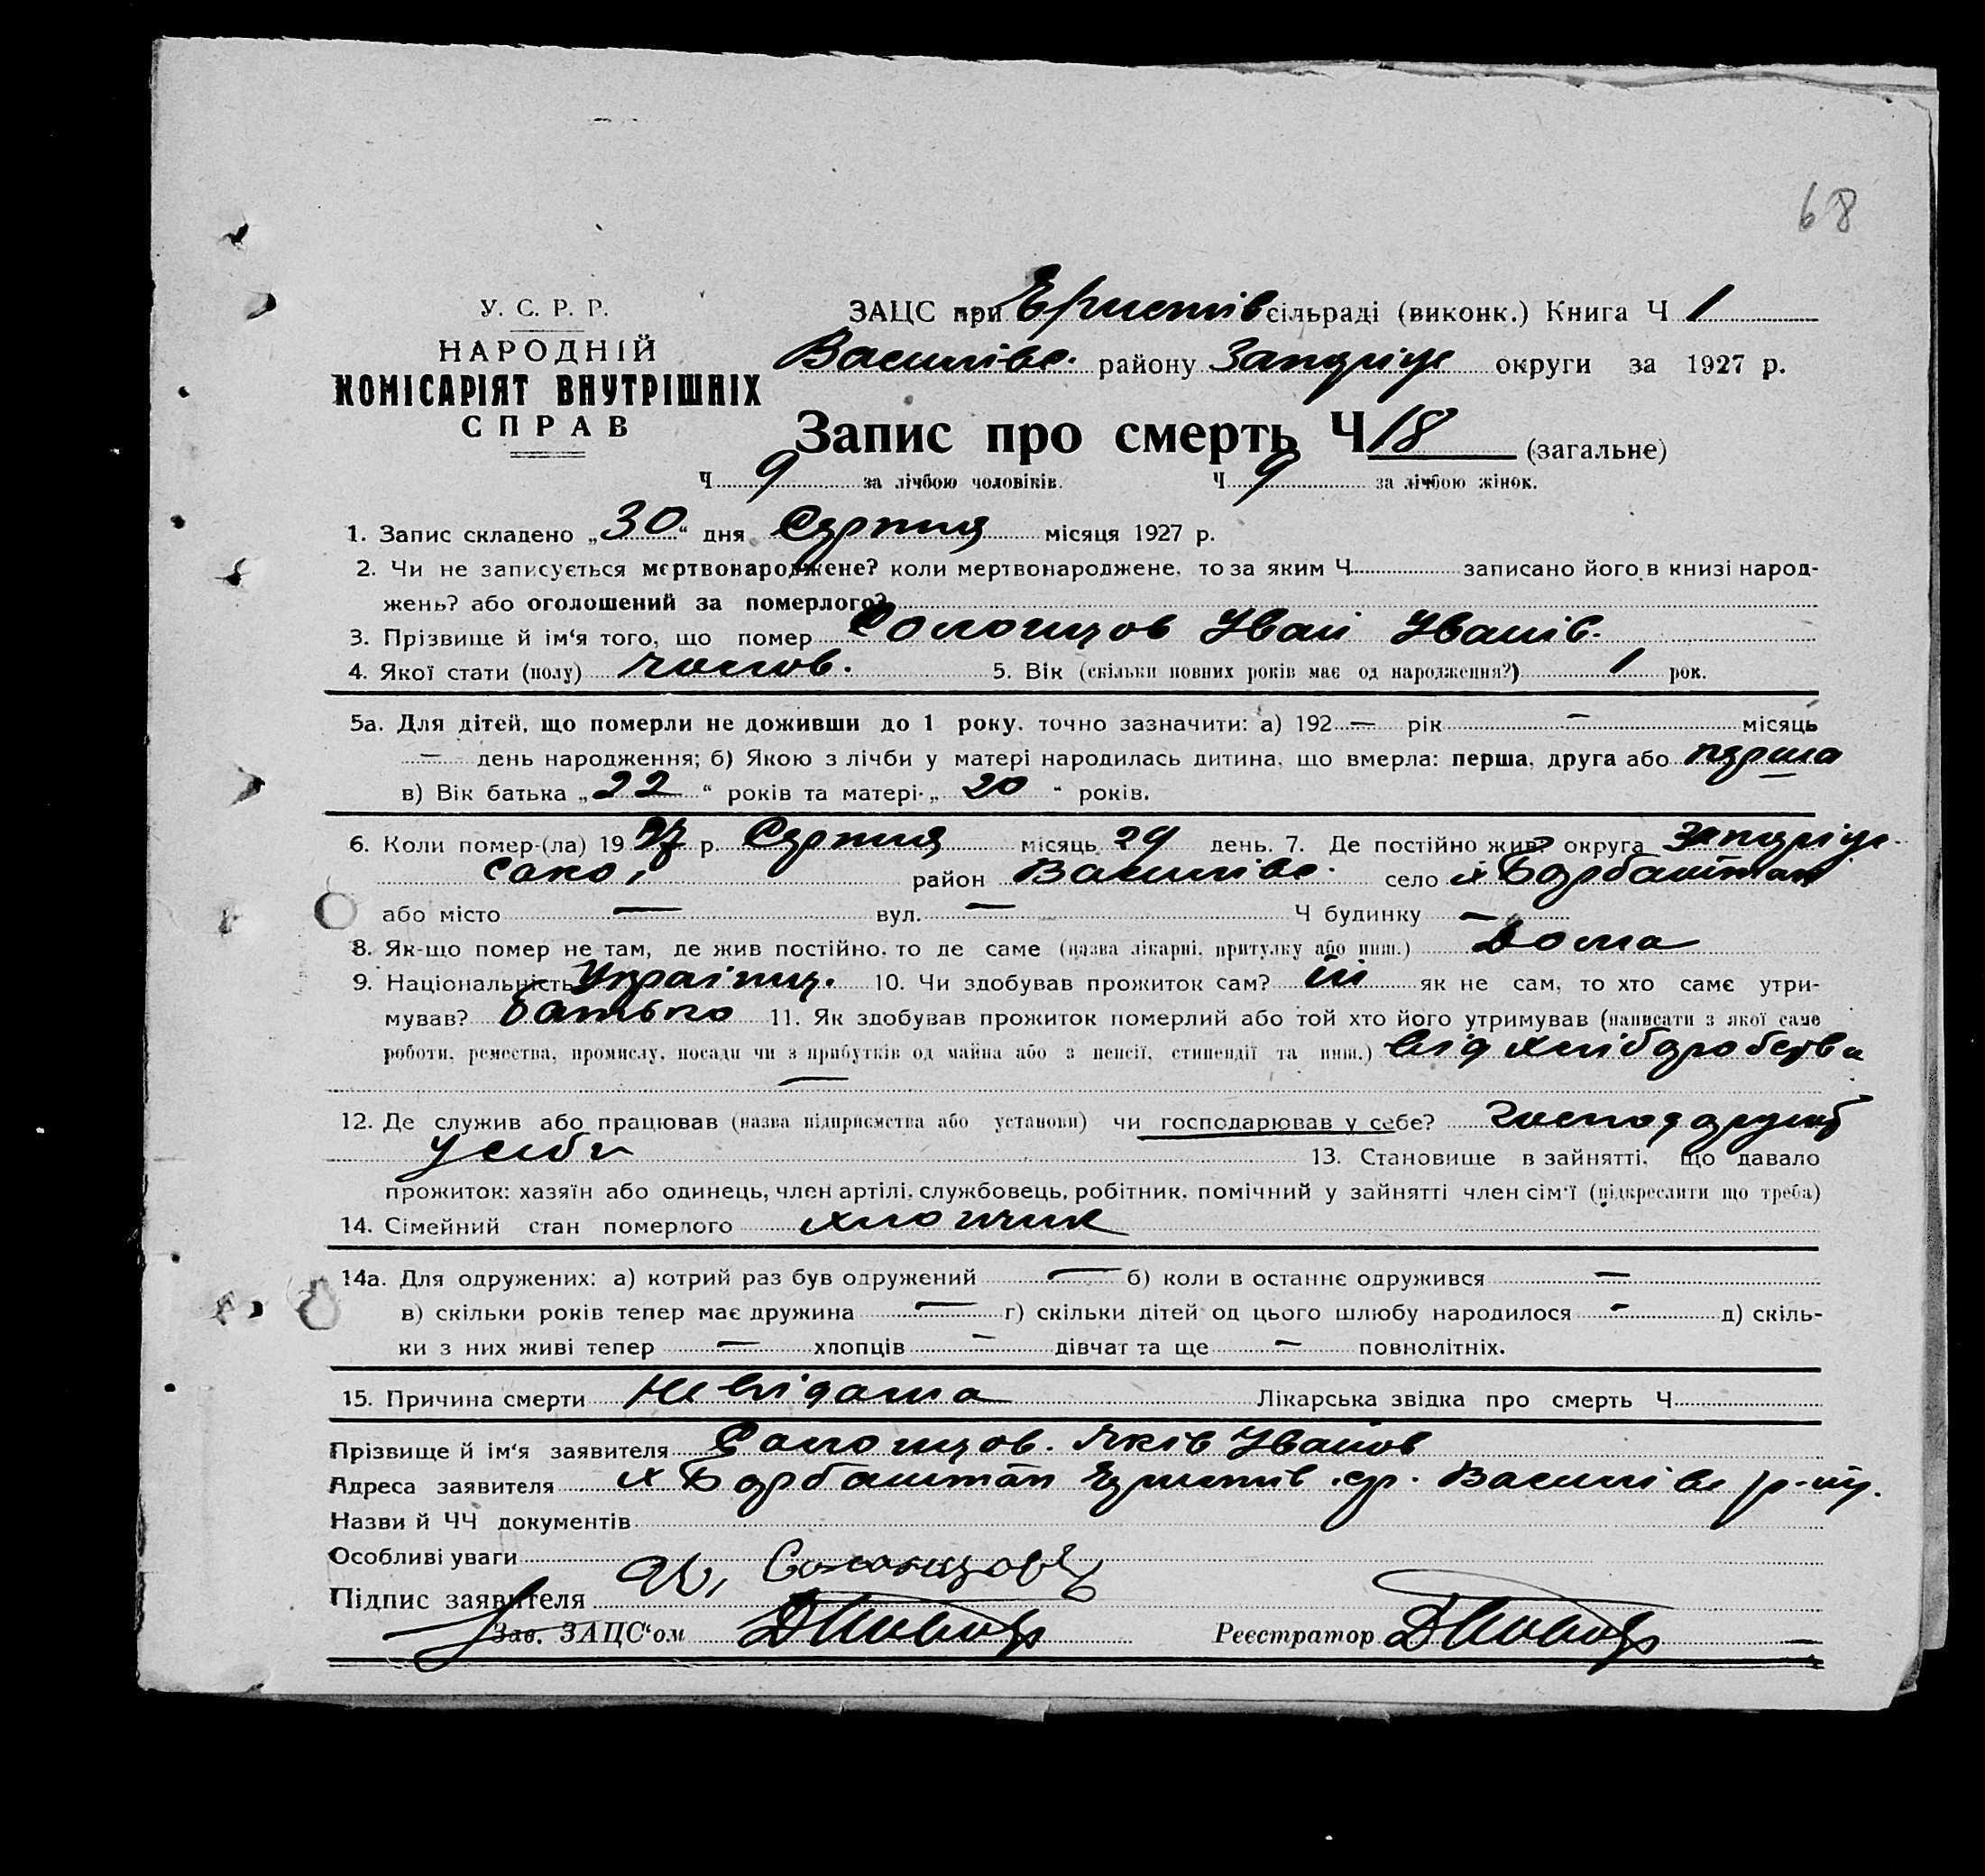 68
У. С. Р. Р.
НАРОДНІЙ
КОМІСАРІЯТ ВНУТРІШНІХ
СПРАВ
ЗАЦС при Еристів сільраді (виконк.) Книга Ч 1
Василівс. району Запоріж округи за 1927 р.
Запис про смерть Ч 18 (загальне)
Ч 9 за лічбою чоловіків. Ч 9 за лічбою жінок.
1. Запис складено „30“ дня Серпня місяця 1927 р.
2. Чи не записується мертвонароджене? коли мертвонароджене, то за яким Ч записано його в книзі народ-
жень? або оголошений за померлого?
3. Прізвище й ім‘я того, що помер Солонцов Іван Іванів.
4. Якої стати (полу) чолов. 5. Вік (скільки повних років має од народження?) 1 рок.
5а. Для дітей, що померли не доживши до 1 року, точно зазначити: а) 192 — рік — місяць
— день народження; б) Якою з лічби у матері народилась дитина, що вмерла: перша, друга або перша
в) Вік батька „22“ років та матері „20“ років.
6. Коли помер-(ла) 19 27 р. Серпня місяць 29 день. 7. Де постійно жив? округа Запоріж-
район Василівс. село х Барбаштан
або місто — вул. — Ч будинку —
8. Як-що помер не там, де жив постійно, то де саме (назва лікарні, притулку або инш.) Дома
9. Національність Українц. 10. Чи здобував прожиток сам? ні як не сам, то хто саме утри-
мував? батько 11. Як здобував прожиток померлий або той хто його утримував (написати з якої саме
роботи, ремества, промислу, посади чи з прибутків од майна або з пенсії, стипендії та инш.) від хліборобства
—
12. Де служив або працював (назва підприємства або установи) чи господарював у себе?
у себе 13. Становище в зайнятті, що давало
прожиток: хазяїн або одинець, член артілі, службовець, робітник, помічний у зайнятті член сім‘ї (підкреслити що треба)
14. Сімейний стан померлого хлопчик
14а. Для одружених: а) котрий раз був одружений — б) коли в останнє одружився —
в) скільки років тепер має дружина — г) скільки дітей од цього шлюбу народилося — д) скіль-
ки з них живі тепер — хлопців — дівчат та ще — повнолітніх.
15. Причина смерти невідома Лікарська звідка про смерть Ч
Прізвище й ім‘я заявителя Солонцов. Яків Іванов
Адреса заявителя х Барбаштан Еристів .ср. Василівс р-ну.
Назви й ЧЧ документів
Особливі уваги
Підпис заявителя Солонцов
Зав. ЗАЦС‘ом
Реєстратор